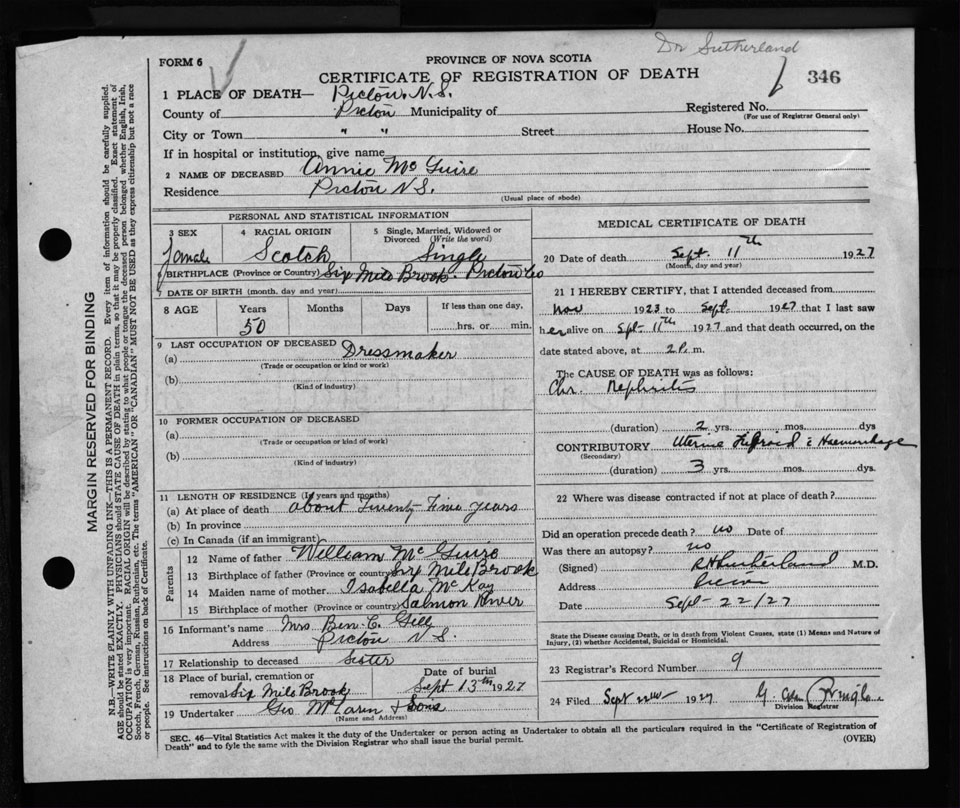 Dr Sutherland
FORM 6
PROVINCE OF NOVA SCOTIA
CERTIFICATE OF REGISTRATION OF DEATH
346
1 PLACE OF DEATH— Pictou. N.S.
County of Pictou Municipality of Registered No.
(For use of Registrar General only)
City or Town " " Street House No.
If in hospital or institution, give name
2 NAME OF DECEASED Annie McGuire
Residence Pictou N.S.
(Usual place of abode)
PERSONAL AND STATISTICAL INFORMATION
3 SEX female
4 RACIAL ORIGIN Scotch
5 Single, Married, Widowed or Divorced (Write the word) Single
6 BIRTHPLACE (Province or Country) Six Mile Brook. Pictou Co
7 DATE OF BIRTH (month, day and year)
8 AGE Years 50 Months Days If less than one day, hrs. or min.
9 LAST OCCUPATION OF DECEASED
(a) Dressmaker
(Trade or occupation or kind or work)
(b)
(Kind of industry)
10 FORMER OCCUPATION OF DECEASED
(a)
(Trade or occupation or kind of work)
(b)
(Kind of industry)
11 LENGTH OF RESIDENCE (In years and months)
(a) At place of death about Twenty Five years
(b) In province
(c) In Canada (if an immigrant)
Parents
12 Name of father William McGuire
13 Birthplace of father (Province or country) Six Mile Brook
14 Maiden name of mother Isabella McKay
15 Birthplace of mother (Province or country) Salmon River
16 Informant's name Mrs Ben. C. Gill
Address Pictou N S.
17 Relationship to deceased Sister
18 Place of burial, cremation or removal Six Mile Brook
Date of burial Sept 13th 1927
19 Undertaker Geo McLaren & Sons
(Name and Address)
MEDICAL CERTIFICATE OF DEATH
20 Date of death Sept. 11th 1927
(Month, day and year)
21 I HEREBY CERTIFY, that I attended deceased from
Nov 1923 to Sept. 1927 that I last saw
her alive on Spt- 11th 1927 and that death occurred, on the
date stated above, at 2 P. m.
The CAUSE OF DEATH was as follows:
Chr. Nephritis
(duration) 2 yrs. mos. dys
CONTRIBUTORY Uterine Fibroid c Haemorrhage
(Secondary)
(duration) 3 yrs. mos. dys.
22 Where was disease contracted if not at place of death?
Did an operation precede death? no Date of
Was there an autopsy? no
(Signed) Sutherland M.D.
Address Pictou
Date Sept- 22/27
State the Disease causing Death, or in death from Violent Causes, state (1) Means and Nature of
Injury, (2) whether Accidental, Suicidal or Homicidal.
23 Registrar's Record Number 9
24 Filed Sept 1927
Division Registrar
SEC. 46—Vital Statistics Act makes it the duty of the Undertaker or person acting as Undertaker to obtain all the particulars required in the "Certificate of Registration of
Death" and to fyle the same with the Division Registrar who shall issue the burial permit.
(OVER)
MARGIN RESERVED FOR BINDING
N.B.—WRITE PLAINLY WITH UNFADING INK—THIS IS A PERMANENT RECORD. Every item of information should be carefully supplied.
AGE should be stated EXACTLY. PHYSICIANS should STATE CAUSE OF DEATH in plain terms, so that it may be properly classified. Exact statement of
OCCUPATION is very important. RACIAL ORIGIN will be described by stating to what people or tongue the deceased person belonged whether English, Irish,
Scotch, French, German, Russian, Ruthenian, etc. The terms "AMERICAN" OR "CANADIAN" MUST NOT BE USED as they express citizenship but not a race
or people. See instructions on back of Certificate.